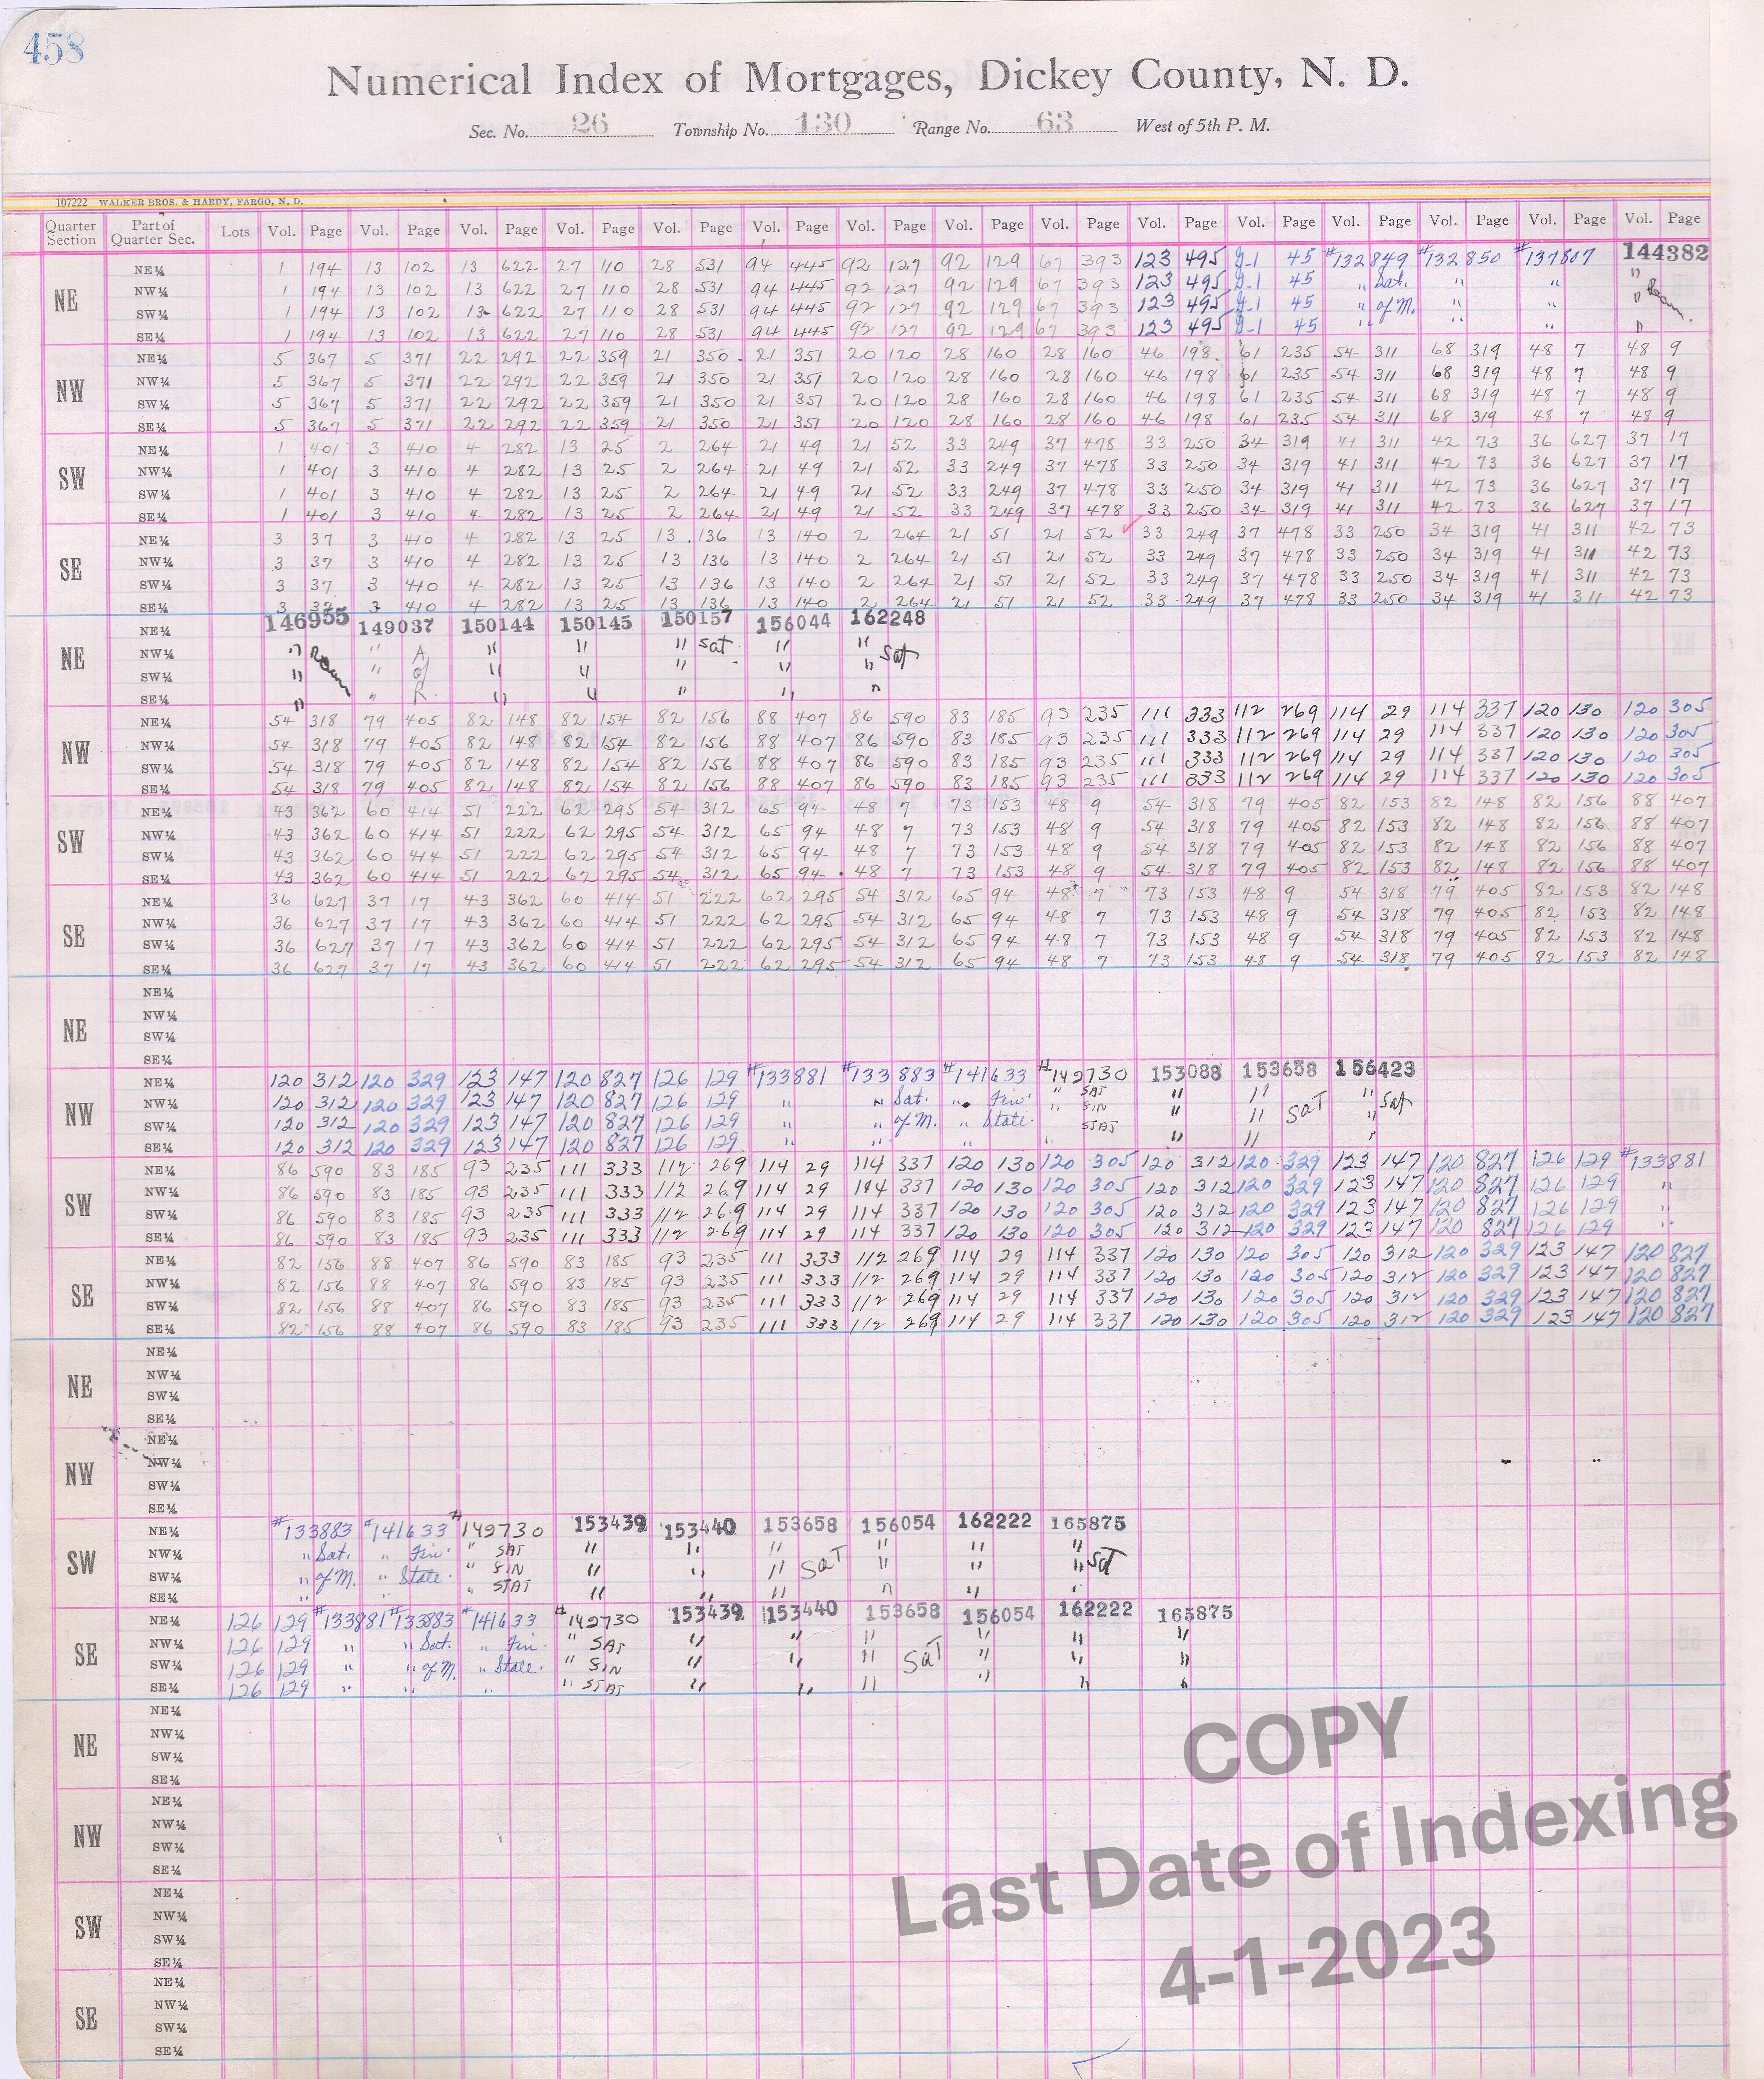 458
Numerical Index of Mortgages, Dickey County, N. D.
Sec. No. 26 Township No. 130 Range No. 63 West of 5th P. M.
107222 WALKER BROS. & HARDY, FARGO, N. D.
Quarter Section Part of Quarter Sec. Lots Vol. Page Vol. Page Vol. Page Vol. Page Vol. Page Vol. Page Vol. Page Vol. Page Vol. Page Vol. Page Vol. Page Vol. Page Vol. Page Vol. Page Vol. Page
NE
NE¼ 1 194 13 102 13 622 27 110 28 531 94 445 92 127 92 129 67 393 123 495 45 #132849 #132850 #137807 144382
NW¼ 1 194 13 102 13 622 27 110 28 531 94 445 92 127 92 129 67 393 123 495 45 " Sat. " " "
SW¼ 1 194 13 102 13 622 27 110 28 531 94 445 92 127 92 129 67 393 123 495 45 " of M. " " "
SE¼ 1 194 13 102 13 622 27 110 28 531 94 445 92 127 92 129 67 393 123 495 45 " " " "
NW
NE¼ 5 367 5 371 22 292 22 359 21 350 21 351 20 120 28 160 28 160 46 198 61 235 54 311 68 319 48 7 48 9
NW¼ 5 367 5 371 22 292 22 359 21 350 21 351 20 120 28 160 28 160 46 198 61 235 54 311 68 319 48 7 48 9
SW¼ 5 367 5 371 22 292 22 359 21 350 21 351 20 120 28 160 28 160 46 198 61 235 54 311 68 319 48 7 48 9
SE¼ 5 367 5 371 22 292 22 359 21 350 21 351 20 120 28 160 28 160 46 198 61 235 54 311 68 319 48 7 48 9
SW
NE¼ 1 401 3 410 4 282 13 25 2 264 21 49 21 52 33 249 37 478 33 250 34 319 41 311 42 73 36 627 37 17
NW¼ 1 401 3 410 4 282 13 25 2 264 21 49 21 52 33 249 37 478 33 250 34 319 41 311 42 73 36 627 37 17
SW¼ 1 401 3 410 4 282 13 25 2 264 21 49 21 52 33 249 37 478 33 250 34 319 41 311 42 73 36 627 37 17
SE¼ 1 401 3 410 4 282 13 25 2 264 21 49 21 52 33 249 37 478 33 250 34 319 41 311 42 73 36 627 37 17
SE
NE¼ 3 37 3 410 4 282 13 25 13 136 13 140 2 264 21 51 21 52 33 249 37 478 33 250 34 319 41 311 42 73
NW¼ 3 37 3 410 4 282 13 25 13 136 13 140 2 264 21 51 21 52 33 249 37 478 33 250 34 319 41 311 42 73
SW¼ 3 37 3 410 4 282 13 25 13 136 13 140 2 264 21 51 21 52 33 249 37 478 33 250 34 319 41 311 42 73
SE¼ 3 37 3 410 4 282 13 25 13 136 13 140 2 264 21 51 21 52 33 249 37 478 33 250 34 319 41 311 42 73
NE
NE¼ 146955 149037 150144 150145 150157 156044 162248
NW¼ " " A " " " Sat " "
SW¼ " " of " " " " " Sat
SE¼ " " R. " " " " "
NW
NE¼ 54 318 79 405 82 148 82 154 82 156 88 407 86 590 83 185 93 235 111 333 112 269 114 29 114 337 120 130 120 305
NW¼ 54 318 79 405 82 148 82 154 82 156 88 407 86 590 83 185 93 235 111 333 112 269 114 29 114 337 120 130 120 305
SW¼ 54 318 79 405 82 148 82 154 82 156 88 407 86 590 83 185 93 235 111 333 112 269 114 29 114 337 120 130 120 305
SE¼ 54 318 79 405 82 148 82 154 82 156 88 407 86 590 83 185 93 235 111 333 112 269 114 29 114 337 120 130 120 305
SW
NE¼ 43 362 60 414 51 222 62 295 54 312 65 94 48 7 73 153 48 9 54 318 79 405 82 153 82 148 82 156 88 407
NW¼ 43 362 60 414 51 222 62 295 54 312 65 94 48 7 73 153 48 9 54 318 79 405 82 153 82 148 82 156 88 407
SW¼ 43 362 60 414 51 222 62 295 54 312 65 94 48 7 73 153 48 9 54 318 79 405 82 153 82 148 82 156 88 407
SE¼ 43 362 60 414 51 222 62 295 54 312 65 94 48 7 73 153 48 9 54 318 79 405 82 153 82 148 82 156 88 407
SE
NE¼ 36 627 37 17 43 362 60 414 51 222 62 295 54 312 65 94 48 7 73 153 48 9 54 318 79 405 82 153 82 148
NW¼ 36 627 37 17 43 362 60 414 51 222 62 295 54 312 65 94 48 7 73 153 48 9 54 318 79 405 82 153 82 148
SW¼ 36 627 37 17 43 362 60 414 51 222 62 295 54 312 65 94 48 7 73 153 48 9 54 318 79 405 82 153 82 148
SE¼ 36 627 37 17 43 362 60 414 51 222 62 295 54 312 65 94 48 7 73 153 48 9 54 318 79 405 82 153 82 148
NE
NE¼
NW¼
SW¼
SE¼
NW
NE¼ 120 312 120 329 123 147 120 827 126 129 #133881 #133883 #141633 #149730 153088 153658 156423
NW¼ 120 312 120 329 123 147 120 827 126 129 " " Sat. " Fin. " SAT " " " Sat
SW¼ 120 312 120 329 123 147 120 827 126 129 " " of M. " State. " FIN " " SAT "
SE¼ 120 312 120 329 123 147 120 827 126 129 " " " " STAT " " "
SW
NE¼ 86 590 83 185 93 235 111 333 112 269 114 29 114 337 120 130 120 305 120 312 120 329 123 147 120 827 126 129 #133881
NW¼ 86 590 83 185 93 235 111 333 112 269 114 29 114 337 120 130 120 305 120 312 120 329 123 147 120 827 126 129 "
SW¼ 86 590 83 185 93 235 111 333 112 269 114 29 114 337 120 130 120 305 120 312 120 329 123 147 120 827 126 129 "
SE¼ 86 590 83 185 93 235 111 333 112 269 114 29 114 337 120 130 120 305 120 312 120 329 123 147 120 827 126 129 "
SE
NE¼ 82 156 88 407 86 590 83 185 93 235 111 333 112 269 114 29 114 337 120 130 120 305 120 312 120 329 123 147 120 827
NW¼ 82 156 88 407 86 590 83 185 93 235 111 333 112 269 114 29 114 337 120 130 120 305 120 312 120 329 123 147 120 827
SW¼ 82 156 88 407 86 590 83 185 93 235 111 333 112 269 114 29 114 337 120 130 120 305 120 312 120 329 123 147 120 827
SE¼ 82 156 88 407 86 590 83 185 93 235 111 333 112 269 114 29 114 337 120 130 120 305 120 312 120 329 123 147 120 827
NE
NE¼
NW¼
SW¼
SE¼
NW
NE¼
NW¼
SW¼
SE¼
SW
NE¼ #133883 #141633 #149730 153439 153440 153658 156054 162222 165875
NW¼ " Sat. " Fin. " SAT " " " " " "
SW¼ " of M. " State. " FIN " " " SAT " " " Sat
SE¼ " " " STAT " " " " " "
SE
NE¼ 126 129 #133881 #133883 #141633 #149730 153439 153440 153658 156054 162222 165875
NW¼ 126 129 " " Sat. " Fin. " SAT " " " " " "
SW¼ 126 129 " " of M. " State. " FIN " " " SAT " " "
SE¼ 126 129 " " " " STAT " " " " " "
NE
NE¼
NW¼
SW¼
SE¼
NW
NE¼
NW¼
SW¼
SE¼
SW
NE¼
NW¼
SW¼
SE¼
SE
NE¼
NW¼
SW¼
SE¼
COPY
Last Date of Indexing
4-1-2023